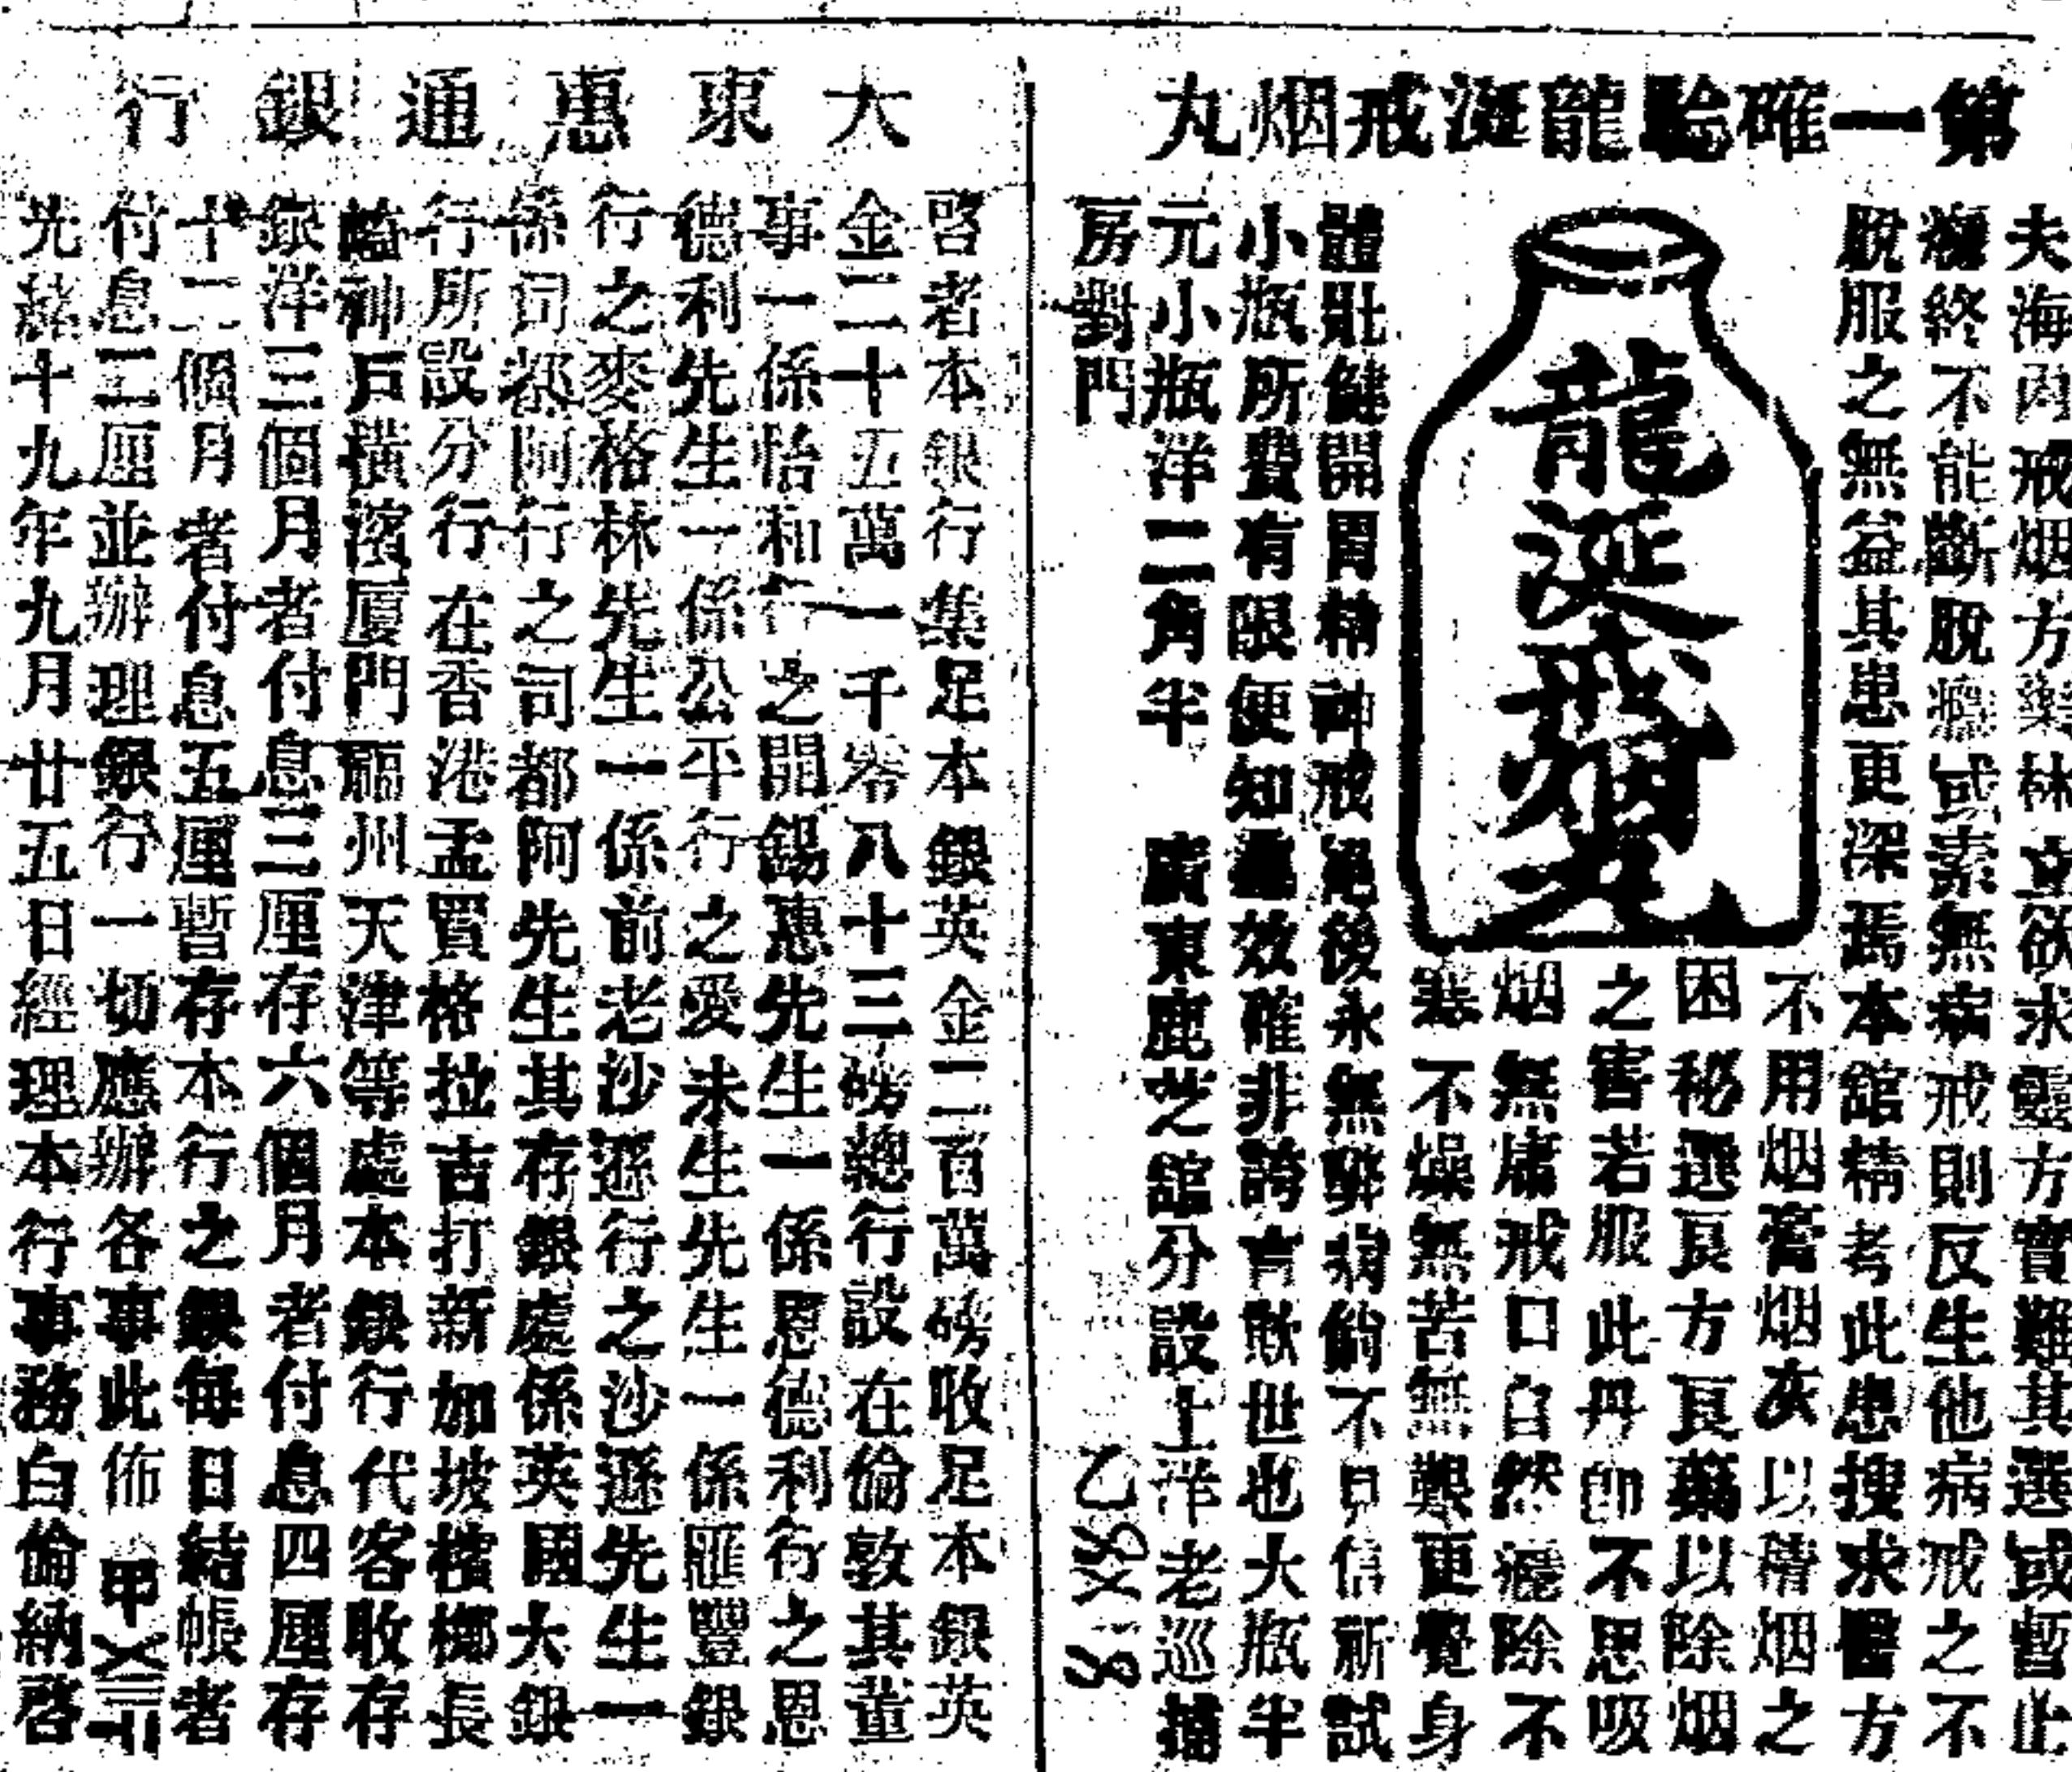 第一確驗龍涎戒烟丸
夫海內戒烟方藥林立欲求靈方實難其選或暫止
癮終不能斷脫癮或素無病戒則反生他病戒之不
脫服之無益其患更深焉本舘精考此患搜求醫方
不用烟膏烟灰以精烟之
困秘選良方良藥以除烟
之害若服此丹卽不思吸
烟無庸戒口自然癮除不
寒不燥無苦無艱更覺身
體壯健開胃精神戒絕後永無弊病倘不見信祈試
小瓶所費有限便知靈效確非誇言欺世也大瓶半
元小瓶洋二角半　廣東鹿芝舘分設上洋老巡捕
房對門
龍涎戒烟丸
大東惠通銀行
啓者本銀行集足本銀英金二百萬磅收足本銀英
金二十五萬一千零八十三磅總行設在倫敦其董
事一係怡和行之開錫惠先生一係恩德利行之恩
德利先生一係公平行之愛未生先生一係匯豐銀
行之麥格林先生一係前老沙遜行之沙遜先生一
係司都阿行之司都阿先生其存銀處係英國大銀
行所設分行在香港孟買格拉吉打新加坡檳榔長
崎神戶橫濱厦門福州天津等處本銀行代客收存
銀洋三個月者付息三厘存六個月者付息四厘存
十二個月者付息五厘暫存本行之銀每日結帳者
付息二厘並辦理銀行一切應辦各事此佈
光緒十九年九月廿五日經理本行事務白倫納啓